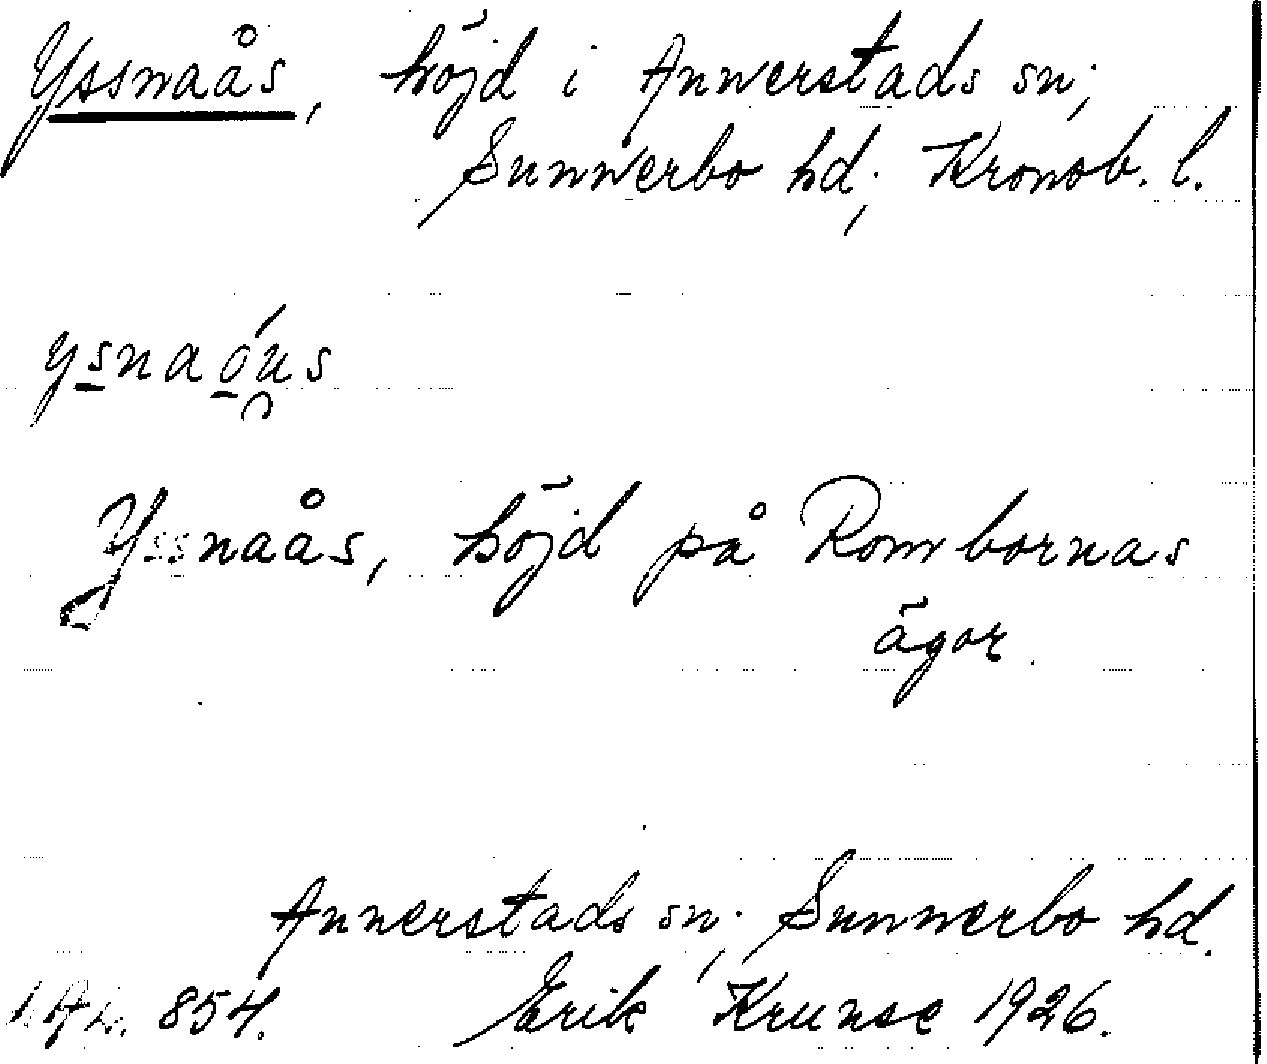 Yssnaås, höjd i Annerstads sn;
Sunnerbo hd; Kronob. l.
ysnaóu̯s
Yssnaås, höjd på Rombornas
ägor.
Annerstads sn; Sunnerbo hd.
854. Erik Krunse 1926.